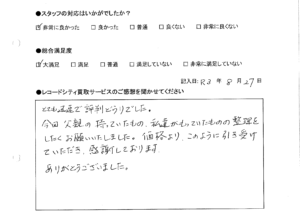 ●スタッフの対応はいかがでしたか?
☑非常に良かった □良かった □普通 □良くない □非常に良くない
●総合満足度
☑大満足 □満足 □普通 □満足していない □非常に満足していない
記入日: R3 年 8 月 27 日
●レコードシティ買取サービスのご感想を聞かせてください
とても迅速で評判どうりでした。
今回父親の持っていたもの、私達がもっていたものの整理を
したくお願いいたしました。価格より、このように引き受け
ていただき、感謝しております
ありがとうございました。